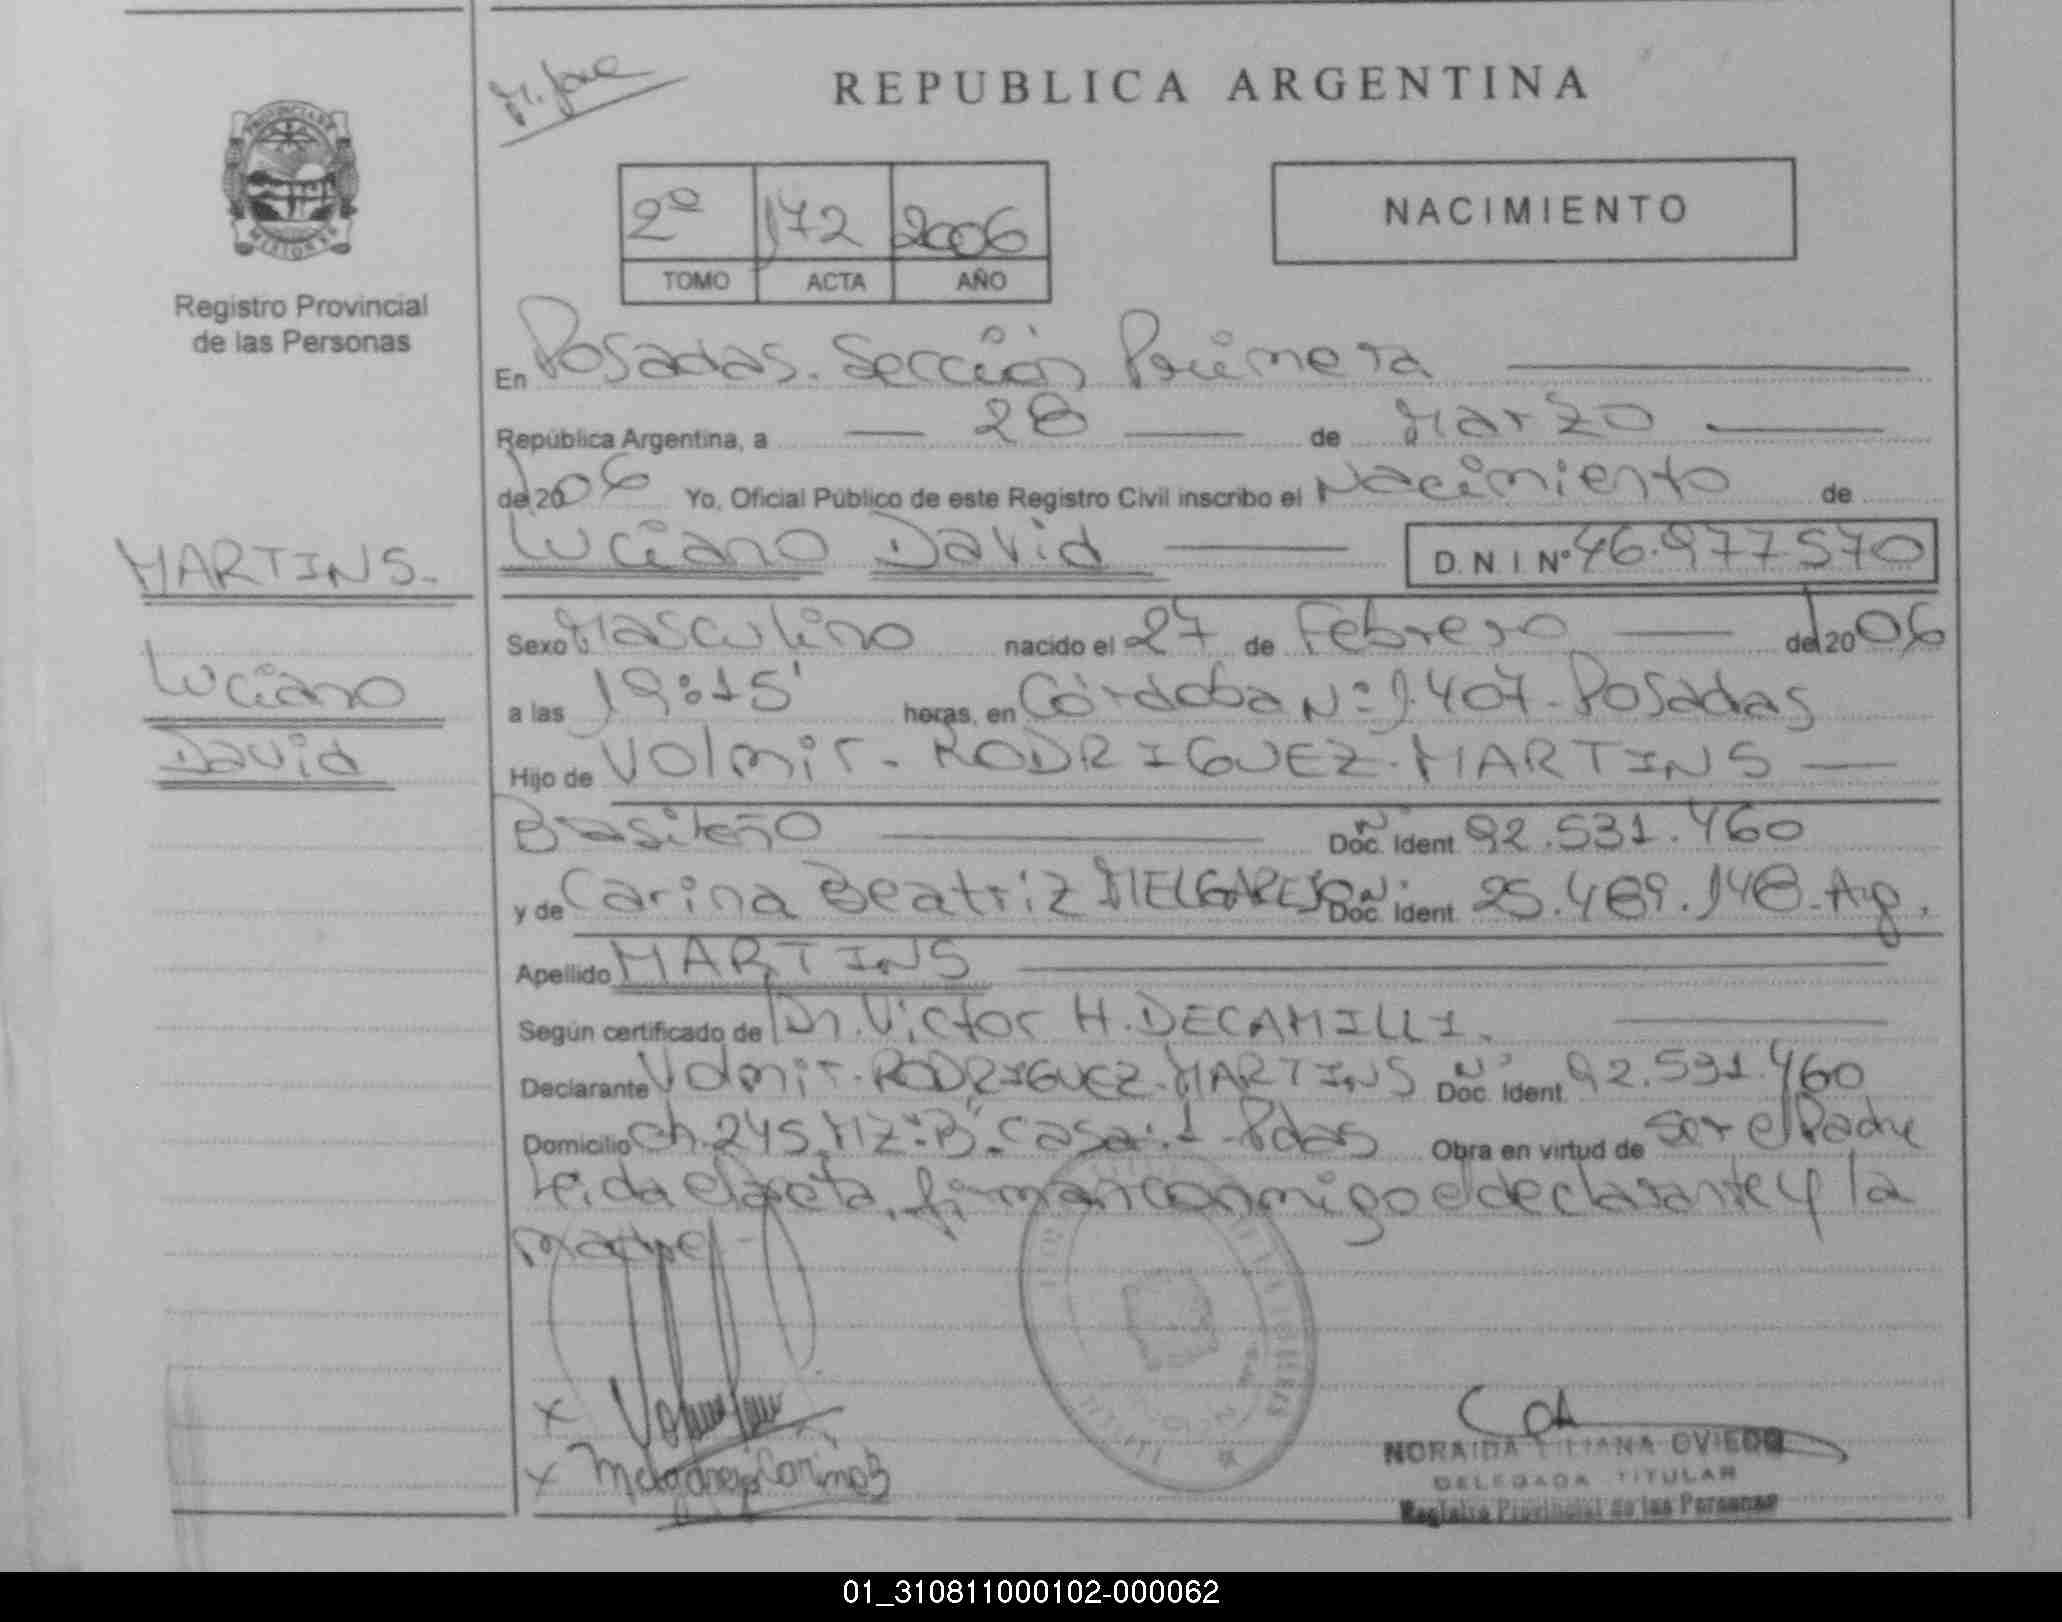 M. José
REPUBLICA ARGENTINA
2º 172 2006
TOMO ACTA AÑO
NACIMIENTO
PROVINCIA DE MISIONES
Registro Provincial
de las Personas
En Posadas. Sección Primera
República Argentina, a 28 de Marzo
del 2006 Yo, Oficial Público de este Registro Civil inscribo el Nacimiento de
Luciano David D.N.I Nº 46.977570
MARTINS.
Luciano
David
Sexo Masculino nacido el 27 de Febrero del 2006
a las 19:15' horas, en Córdoba Nº 1.407-Posadas
Hijo de Volmir-RODRIGUEZ-MARTINS
Brasileño Nº Doc. Ident. 92.531.460
y de Carina Beatriz MELGAREJO Nº Doc. Ident. 25.489.148-Arg.
Apellido MARTINS
Según certificado de Dr. Victor H. DECAMILLI.
Declarante Volmir-RODRIGUEZ-MARTINS Nº Doc. Ident. 92.531.460
Domicilio Ch.245.MZ:"B".Casa:1-Pdas Obra en virtud de Ser el Padre
Leida el acta, firman conmigo el declarante y la
madre-
X
X Melgarejo Carina B
NORAIDA LILIANA OVIEDO
DELEGADA TITULAR
Registro Provincial de las Personas
01_310811000102-000062